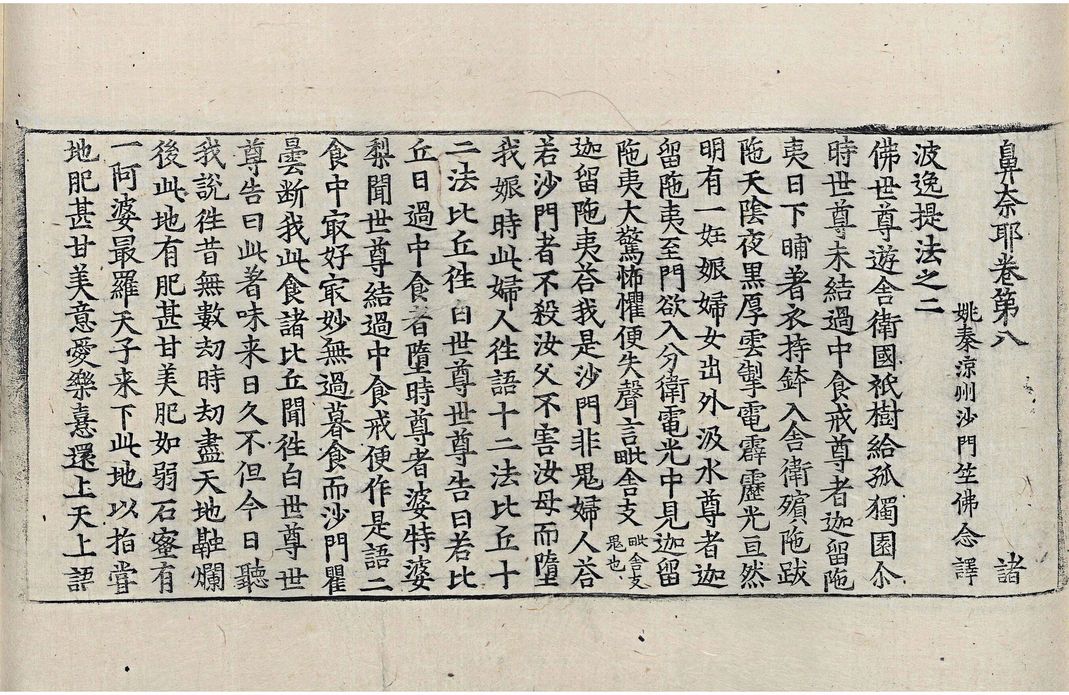 鼻奈耶卷第八 諸
姚秦涼州沙門竺佛念譯
波逸提法之二
佛世尊遊舍衛國祇樹給孤獨園尒
時世尊未結過中食戒尊者迦留陁
夷日下晡著衣持鉢入舍衛殯陁跋
陁天陰夜黑厚雲掣電霹靂光亘然
明有一妊娠婦女出外汲水尊者迦
留陁夷至門欲入分衛電光中見迦留
陁夷大驚怖懼便失聲言毗舍支毗舍支鬼也
迦留陁夷荅我是沙門非鬼婦人荅
若沙門者不殺汝父不害汝母而墮
我娠時此婦人往語十二法比丘十
二法比丘往白世尊世尊告曰若比
丘日過中食者墮時尊者婆特婆
梨聞世尊結過中食戒便作是語二
食中㝡好㝡妙無過暮食而沙門瞿
曇断我此食諸比丘聞往白世尊世
尊告曰此著味来日久不但今日聽
我說往昔無數劫時劫盡天地融爛
後此地有肥甚甘美肥如弱石蜜有
一阿婆最羅天子来下此地以指甞
地肥甚甘美意愛樂憙還上天上語